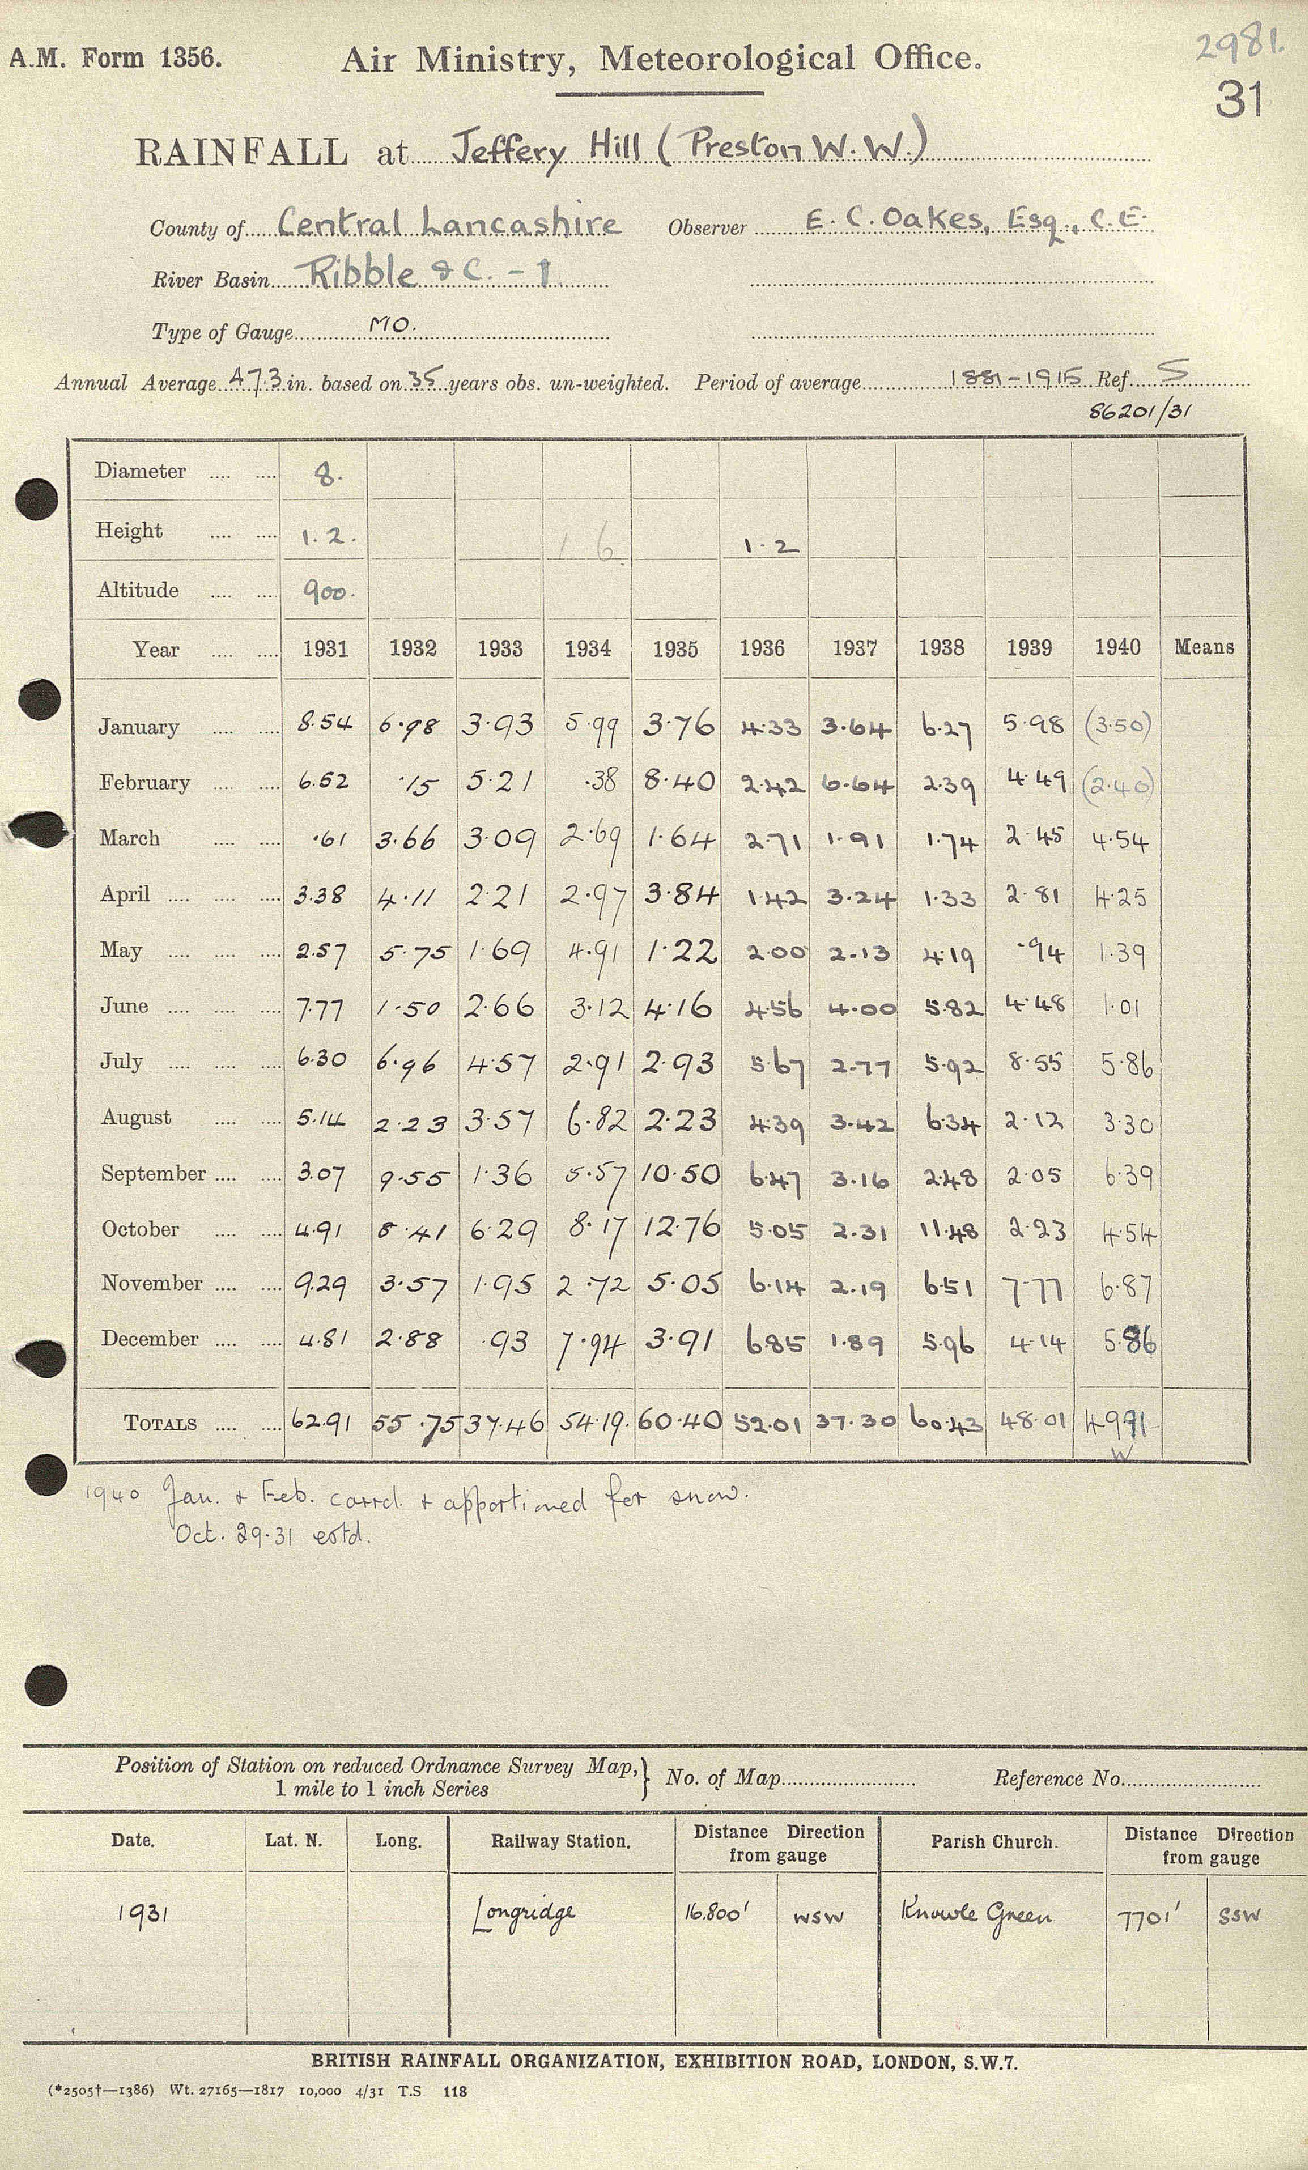 2981.
A.M. Form 1356. Air Ministry, Meteorological Office.
31
RAINFALL at Jeffery Hill (Preston W.W.)
County of Central Lancashire Observer E. C. Oakes, Esq., C.E.
River Basin Ribble & C. - 1.
Type of Gauge MO.
Annual Average 47.3 in. based on 35 years obs. un-weighted. Period of average 1881-1915 Ref. S
86201/31
Diameter 8.
Height 1.2. 1.6 1.2
Altitude 900.
Year 1931 1932 1933 1934 1935 1936 1937 1938 1939 1940 Means
January 8.54 6.98 3.93 5.99 3.76 4.33 3.64 6.27 5.98 (3.50)
February 6.52 .15 5.21 .38 8.40 2.42 6.64 2.39 4.49 (2.40)
March .61 3.66 3.09 2.69 1.64 2.71 1.91 1.74 2.45 4.54
April 3.38 4.11 2.21 2.97 3.84 1.42 3.24 1.33 2.81 4.25
May 2.57 5.75 1.69 4.91 1.22 2.00 2.13 4.19 .94 1.39
June 7.77 1.50 2.66 3.12 4.16 4.56 4.00 5.82 4.48 1.01
July 6.30 6.96 4.57 2.91 2.93 5.67 2.77 5.92 8.55 5.86
August 5.14 2.23 3.57 6.82 2.23 4.39 3.42 6.34 2.12 3.30
September 3.07 9.55 1.36 5.57 10.50 6.47 3.16 2.48 2.05 6.39
October 4.91 8.41 6.29 8.17 12.76 5.05 2.31 11.48 2.23 4.54
November 9.29 3.57 1.95 2.72 5.05 6.14 2.19 6.51 7.77 6.87
December 4.81 2.88 .93 7.94 3.91 6.85 1.89 5.96 4.14 5.86
TOTALS 62.91 55.75 37.46 54.19. 60.40 52.01 37.30 60.43 48.01 49.91
W
1940 Jan. & Feb. corrd. & apportioned for snow.
Oct. 29-31 estd.
Position of Station on reduced Ordnance Survey Map, } No. of Map Reference No.
1 mile to 1 inch Series
Date. Lat. N. Long. Railway Station. Distance Direction from gauge Parish Church. Distance Direction from gauge
1931 Longridge 16,800' WSW Knowle Green 7701' SSW
BRITISH RAINFALL ORGANIZATION, EXHIBITION ROAD, LONDON, S.W.7.
(*2505†—1386) Wt. 27165—1817 10,000 4/31 T.S 118